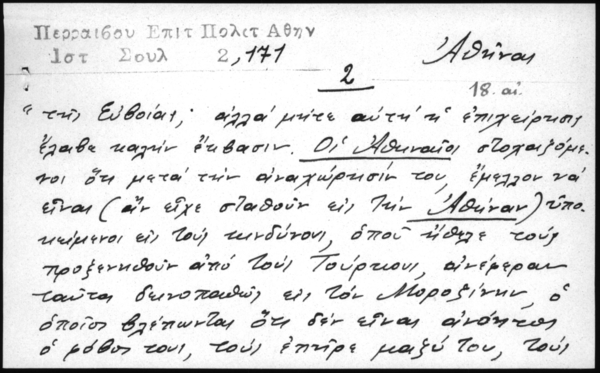 Περραιβου Επιτ Πολιτ Αθην
Ιστ Σουλ 2,171
Ἀθῆναι
2
18. αἰ.
"τῆς Εὐβοίας; ἀλλά μήτε αὐτή ἡ ἐπιχείρησις
ἔλαβε καλήν ἔκβασιν. Οἱ Ἀθηναῖοι στοχαζόμε-
νοι ὅτι μετά τήν ἀναχώρησίν του, ἔμελλον νά
εἶναι (ἄν εἶχε σταθοῦν εἰς τήν Ἀθήναν) ὑπο-
κείμενοι εἰς τούς κινδύνους, ὁπού ἤθελε τούς
προξενηθοῦν ἀπό τούς Τούρκους, ἀνέφεραν
ταῦτα δεινοπαθῶς εἰς τόν Μοροζίνην, ὁ
ὁποῖος βλέπωντας ὅτι δέν εἶναι ἀνόητος
ὁ φόβος τους, τούς ἐπῆρε μαζύ του, τούς